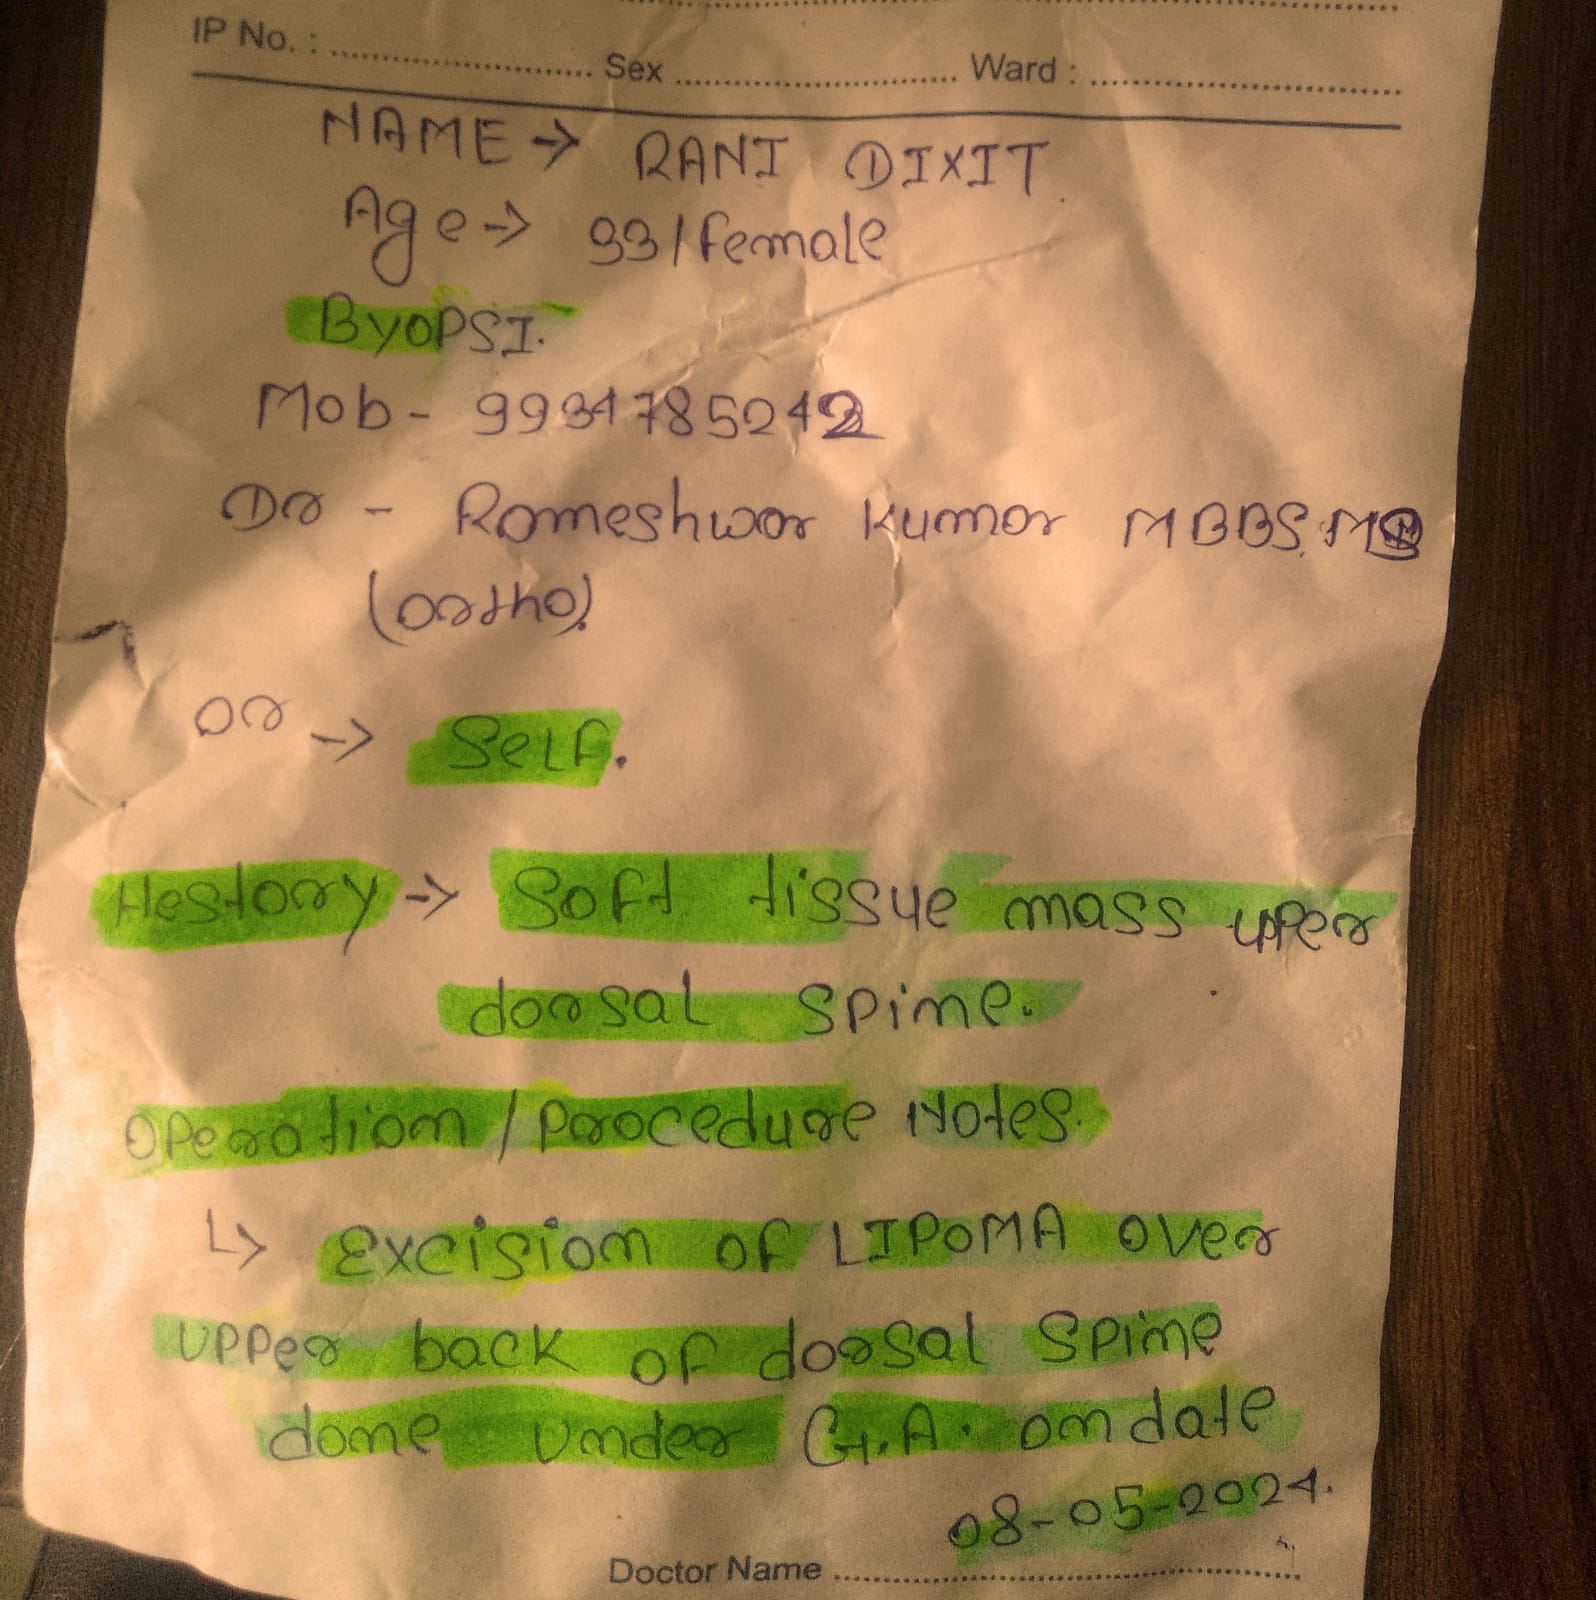 IP No. : .......................... Sex .......................... Ward : ..........................
NAME → RANI DIXIT
Age → 33/female
ByoPSI.
Mob - 9934785242
Dr - Rameshwar Kumar MBBS. MS
(ortho).
or → Self.
Hestory → Soft tissue mass upper
dorsal Spine.
Operation / Procedure Notes.
↳ Excision of LIPOMA over
upper back of dorsal Spine
done under G.A. on date
08-05-2024.
Doctor Name ..........................